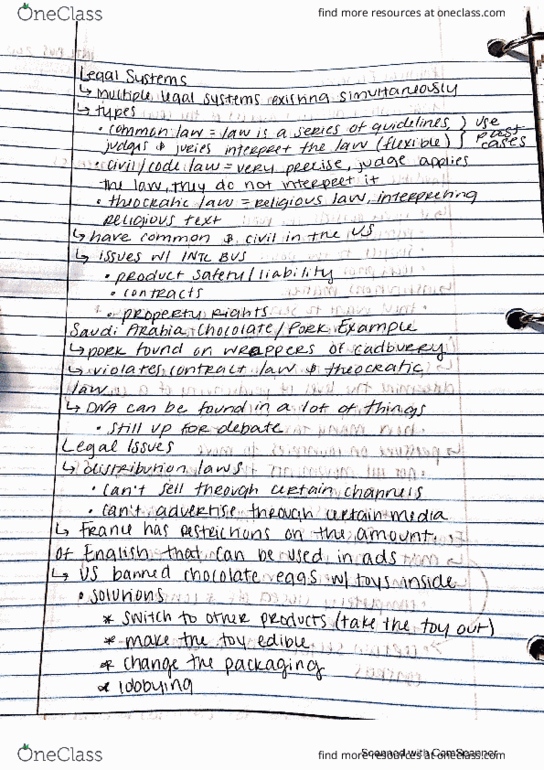 OneClass
find more resources at oneclass.com
Legal Systems
↳ multiple legal systems existing simultaneously
↳ types
• common law = law is a series of guidelines, } use
judges & juries interpret the law (flexible) } past cases
• civil/code law = very precise, judge applies
the law, they do not interpret it
• theocratic law = religious law, interpreting
religious text
↳ have common & civil in the US
↳ issues w/ INTL BUS
• product safety/liability
• contracts
• property rights
Saudi Arabia Chocolate/Pork Example
↳ pork found on wrappers of cadbury
↳ violates contract law & theocratic
law
↳ DNA can be found in a lot of things
• still up for debate
Legal Issues
↳ distribution laws
• can't sell through certain channels
• can't advertise through certain media
↳ France has restrictions on the amount
of English that can be used in ads
↳ US banned chocolate eggs w/ toys inside
• solutions
* switch to other products (take the toy out)
* make the toy edible
* change the packaging
* lobbying
OneClass
find more resources at oneclass.com
Scanned with CamScanner